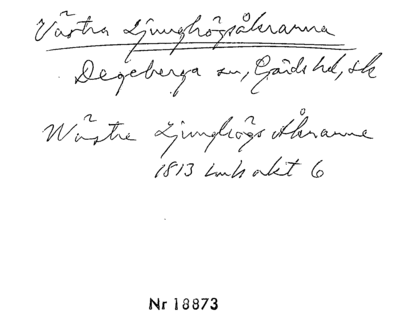 Västra Ljunghögsåkrarna
Degeberga sn, Gärds hd, sk
Wästre Ljunghögs Åkrarne
1813 Lmh akt 6
Nr 18873